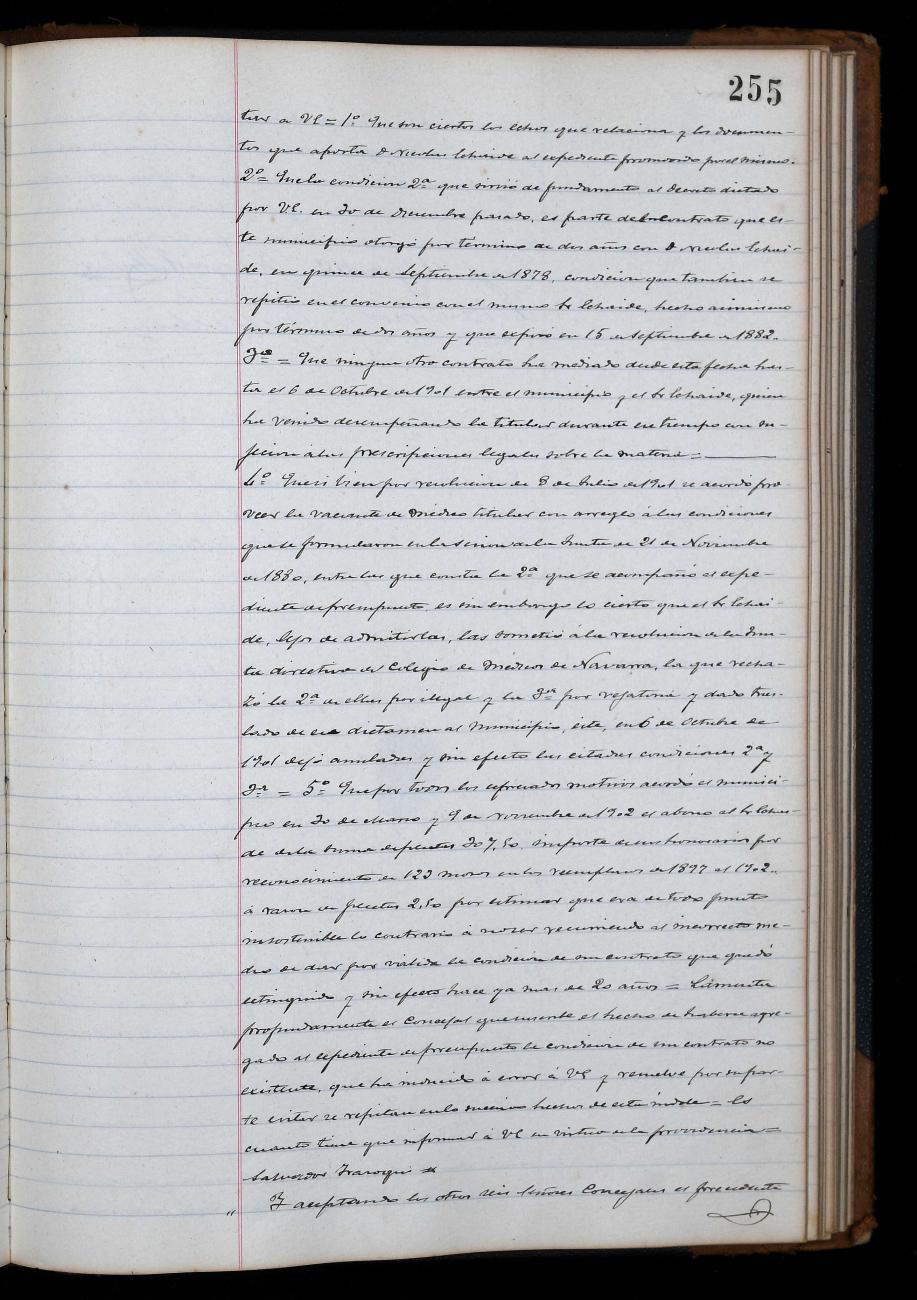 255
tar a VE = 1º Que son ciertos los echos que relaciona y los documen-
tos que aporta D Nicolas Echaide al espediente promovido por el mismo.
2º = Que la condicion 2ª que sirvió de fundamento al Decreto dictado
por VE. en 30 de Diciembre pasado, es parte del contrato que es-
te municipio otorgó por término de dos años con D Nicolas Echai-
de, en quince de Septiembre de 1878, condicion que tambien se
repitió en el convenio con el mismo Sr Echaide, hecho asimismo
por término de dos años y que espiró en 15 de Septiembre de 1882.
3º = Que ningun otro contrato ha mediado desde esta fecha has-
ta el 6 de Octubre de 1901 entre el municipio y el Sr Echaide, quien
ha venido desempeñando la titular durante ese tiempo con su-
jecion á las prescripciones legales sobre la materia =
4º Que si bien por resolucion de 8 de Julio de 1901 se acordó pro-
veer la vacante de Médico titular con arreglo á las condiciones
que se formularon en la sesion de la Junta de 21 de Noviembre
de 1880, entre las que consta la 2ª que se acompañó al espe-
diente de presupuesto, es sin embargo lo cierto que el Sr Echai-
de, lejos de admitirlas, las sometió á la resolucion de la Jun-
ta directiva del Colegio de Médicos de Navarra, la que recha-
zó la 2ª de ellas por ilegal y la 3ª por vejatoria y dado tras-
lado de ese dictamen al Municipio, este, en 6 de Octubre de
1901 dejó anuladas y sin efecto las citadas condiciones 2ª y
3ª = 5º Que por todos los espresados motivos acordó el munici-
pio en 30 de Marzo y 9 de Noviembre de 1902 el abono al Sr Echai-
de de la suma de pesetas 307,50, importe de sus honorarios por
reconocimiento de 123 mozos en los reemplazos de 1897 al 1902..
á razon de pesetas 2,50 por estimar que era de todo punto
insostenible lo contrario á no ser recurriendo al incorrecto me-
dio de dar por válida la condicion de un contrato que quedó
estinguido y sin efecto hace ya mas de 20 años = Lamenta
profundamente el Concejal que suscribe el hecho de haberse agre-
gado al espediente de presupuesto la condicion de un contrato no
existente, que ha inducido á error á VE y resuelve por su par-
te evitar se repitan en lo sucesivo hechos de esta indole = Es
cuanto tiene que informar á VE en virtud de la providencia =
Salvador
" Y aceptando los otros seis Señores Concejales el precedente